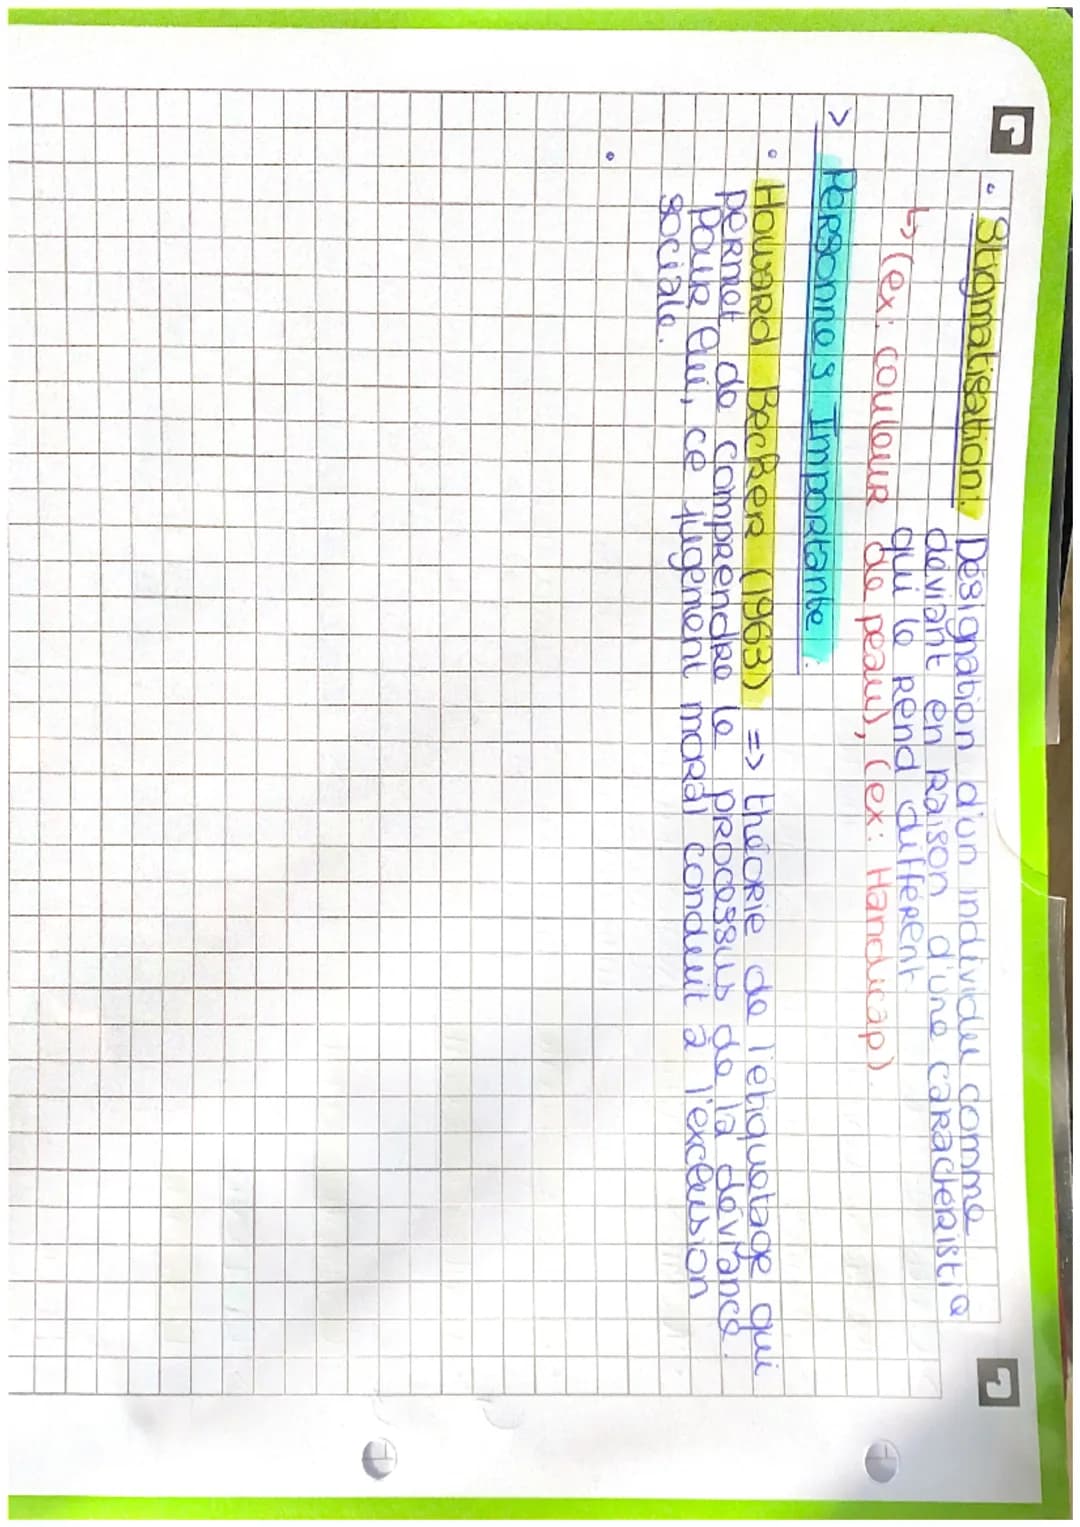 • Stigmatisation: Désignation d'un individu comme
déviant en raison d'une caractéristiq
qui le rend différent
↳ (ex: couleur de peau), (ex: Handicap)
> Personnes Importante :
• Howard Becker (1963) => théorie de l'étiquetage qui
permet de comprendre le processus de la déviance.
pour lui, ce jugement moral conduit à l'exclusion
sociale.
•